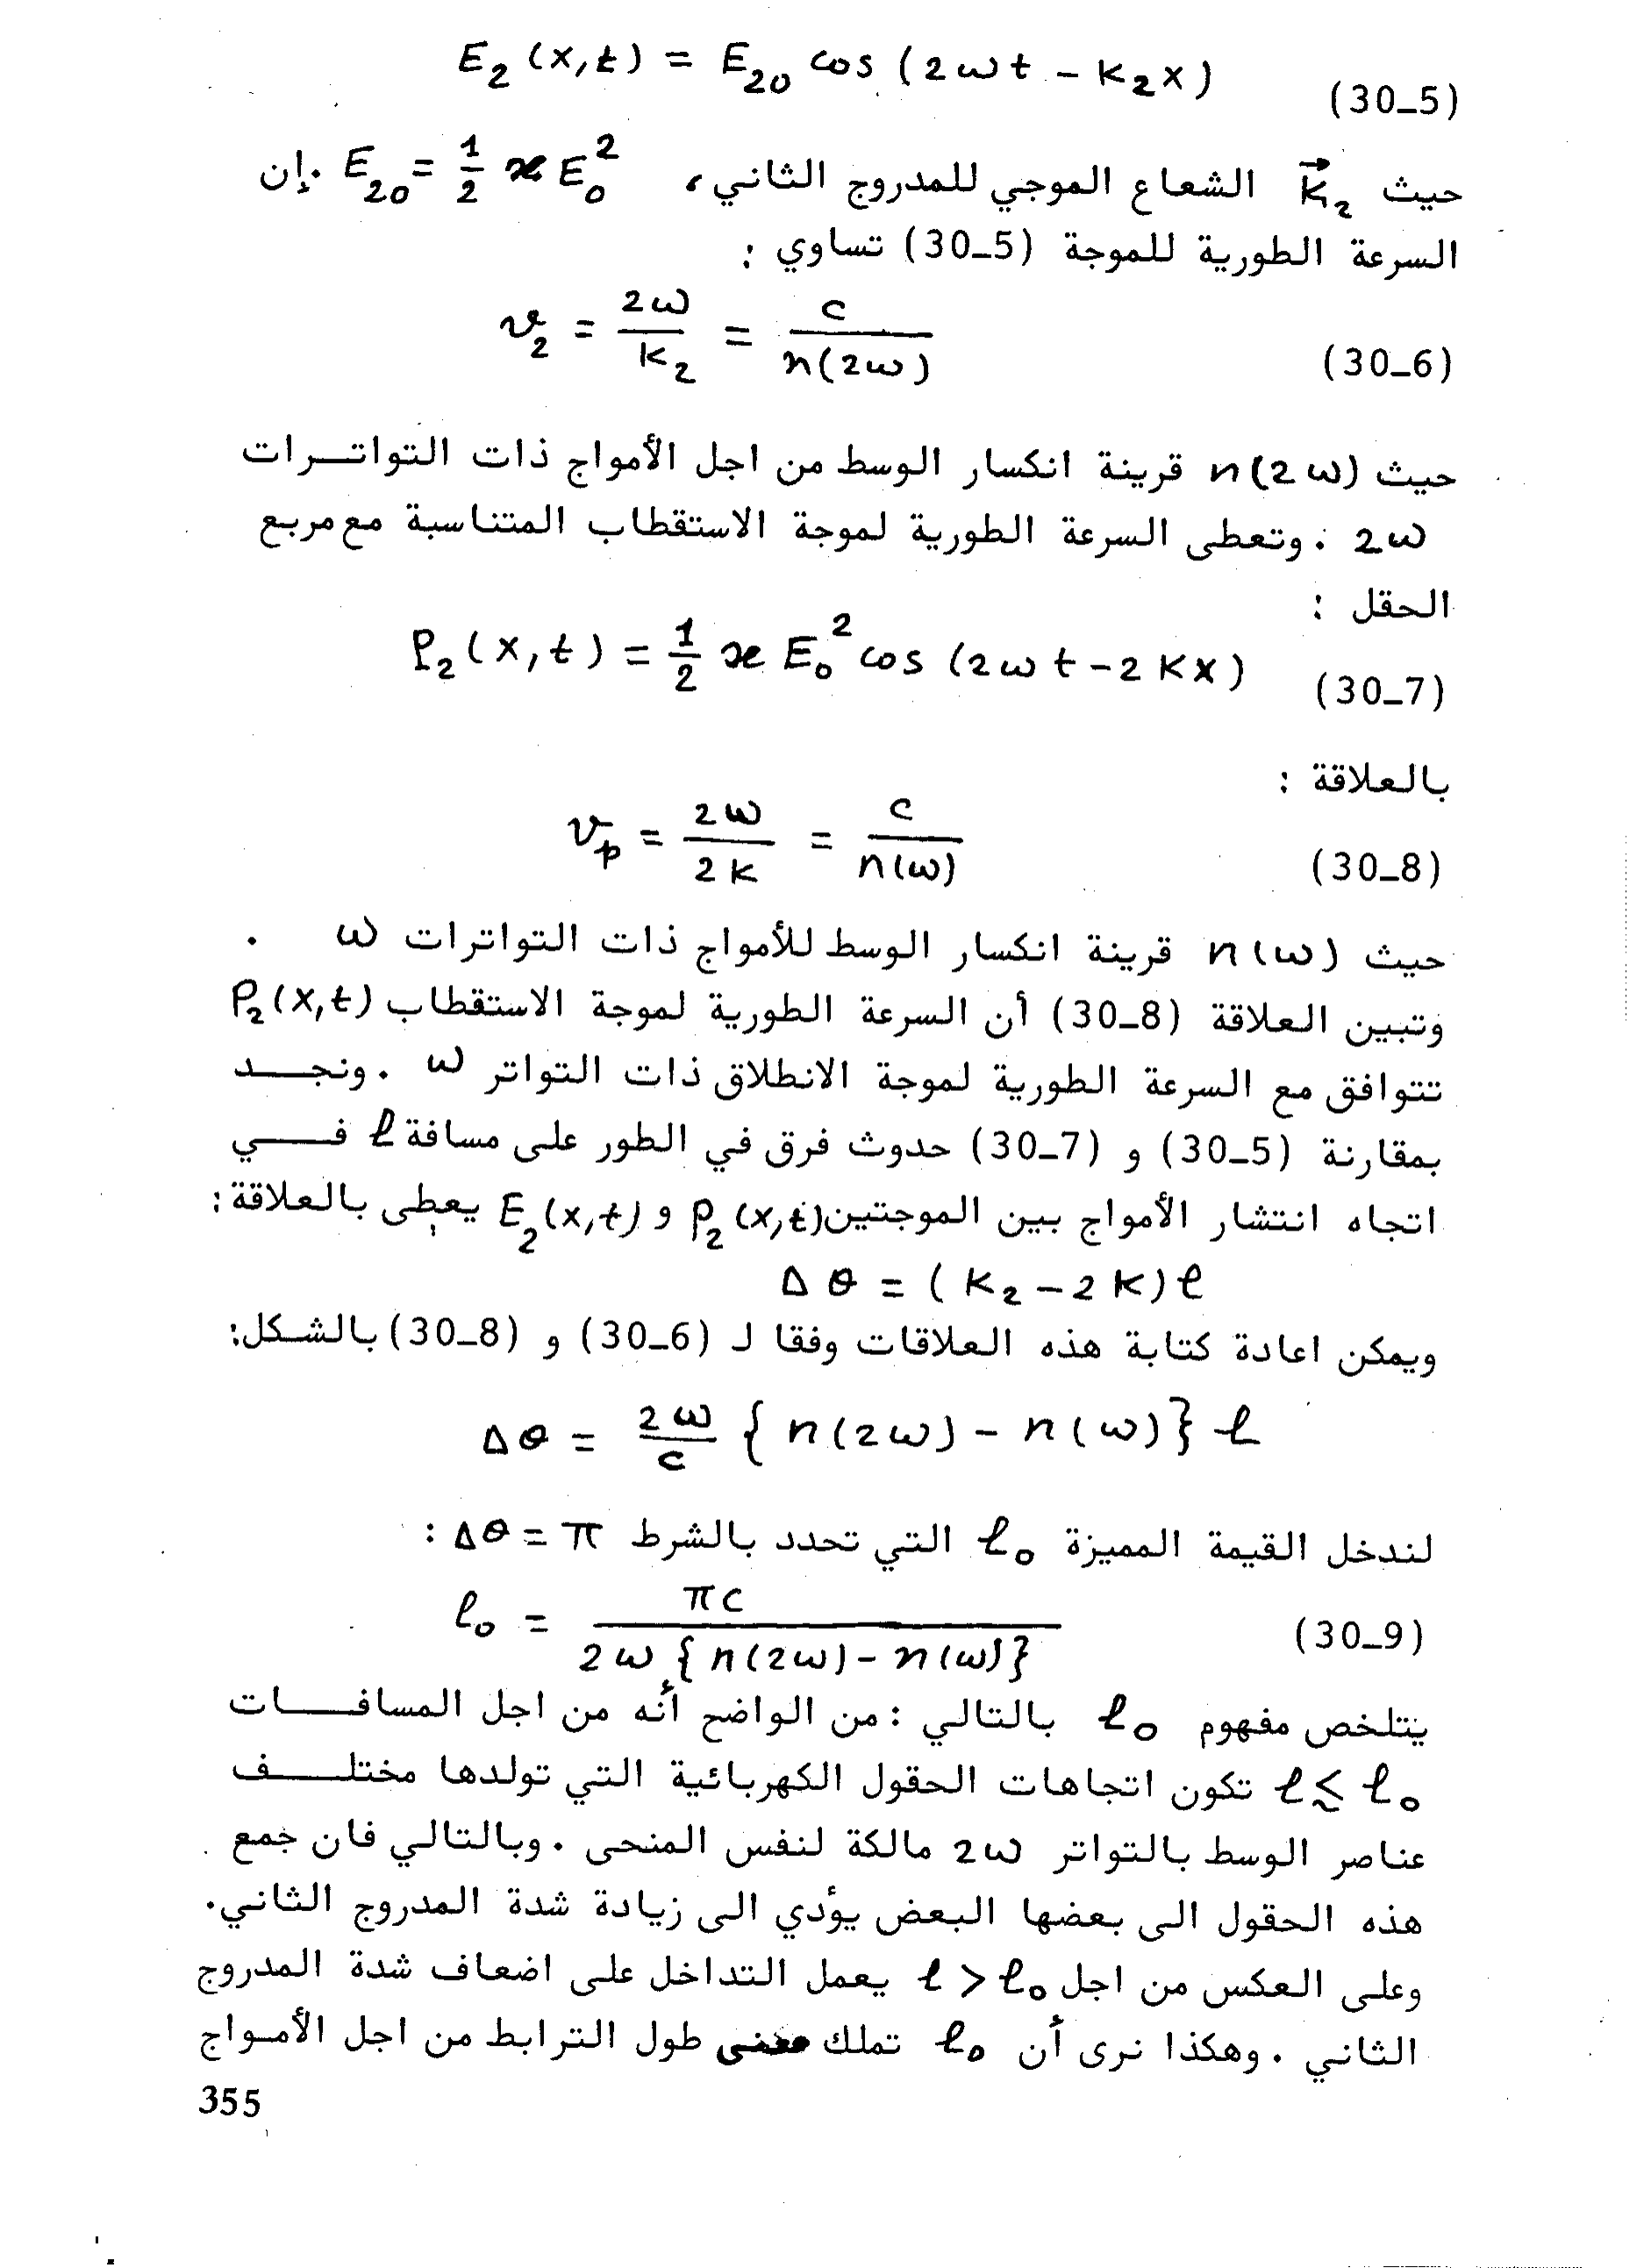 E₂(x,t) = E₂₀ cos (2ωt - k₂x) (30_5)
حيث k⃗₂ الشعاع الموجي للمدروج الثاني، E₂₀ = ½ ϰ E₀² . إن
السرعة الطورية للموجة (30_5) تساوي :
v₂ = 2ω / k₂ = c / n(2ω) (30_6)
حيث n(2ω) قرينة انكسار الوسط من اجل الأمواج ذات التواتـرات
2ω . وتعطى السرعة الطورية لموجة الاستقطاب المتناسبة مع مربع
الحقل :
P₂(x,t) = ½ ϰ E₀² cos (2ωt - 2kx) (30_7)
بالعلاقة :
v_p = 2ω / 2k = c / n(ω) (30_8)
حيث n(ω) قرينة انكسار الوسط للأمواج ذات التواترات ω .
وتبين العلاقة (30_8) أن السرعة الطورية لموجة الاستقطاب P₂(x,t)
تتوافق مع السرعة الطورية لموجة الانطلاق ذات التواتر ω . ونجـــد
بمقارنة (30_5) و (30_7) حدوث فرق في الطور على مسافة ℓ فـــي
اتجاه انتشار الأمواج بين الموجتين P₂(x,t) و E₂(x,t) يعطى بالعلاقة :
Δθ = (k₂ - 2k)ℓ
ويمكن اعادة كتابة هذه العلاقات وفقا لـ (30_6) و (30_8) بالشكل:
Δθ = 2ω/c { n(2ω) - n(ω)} ℓ
لندخل القيمة المميزة ℓ₀ التي تحدد بالشرط Δθ = π :
ℓ₀ = πc / 2ω { n(2ω) - n(ω)} (30_9)
يتلخص مفهوم ℓ₀ بالتالي : من الواضح أنه من اجل المسافـــات
ℓ ≲ ℓ₀ تكون اتجاهات الحقول الكهربائية التي تولدها مختلـــف
عناصر الوسط بالتواتر 2ω مالكة لنفس المنحى . وبالتالي فان جمع
هذه الحقول الى بعضها البعض يؤدي الى زيادة شدة المدروج الثاني.
وعلى العكس من اجل ℓ > ℓ₀ يعمل التداخل على اضعاف شدة المدروج
الثاني . وهكذا نرى أن ℓ₀ تملك معنى طول الترابط من اجل الأمـواج
355